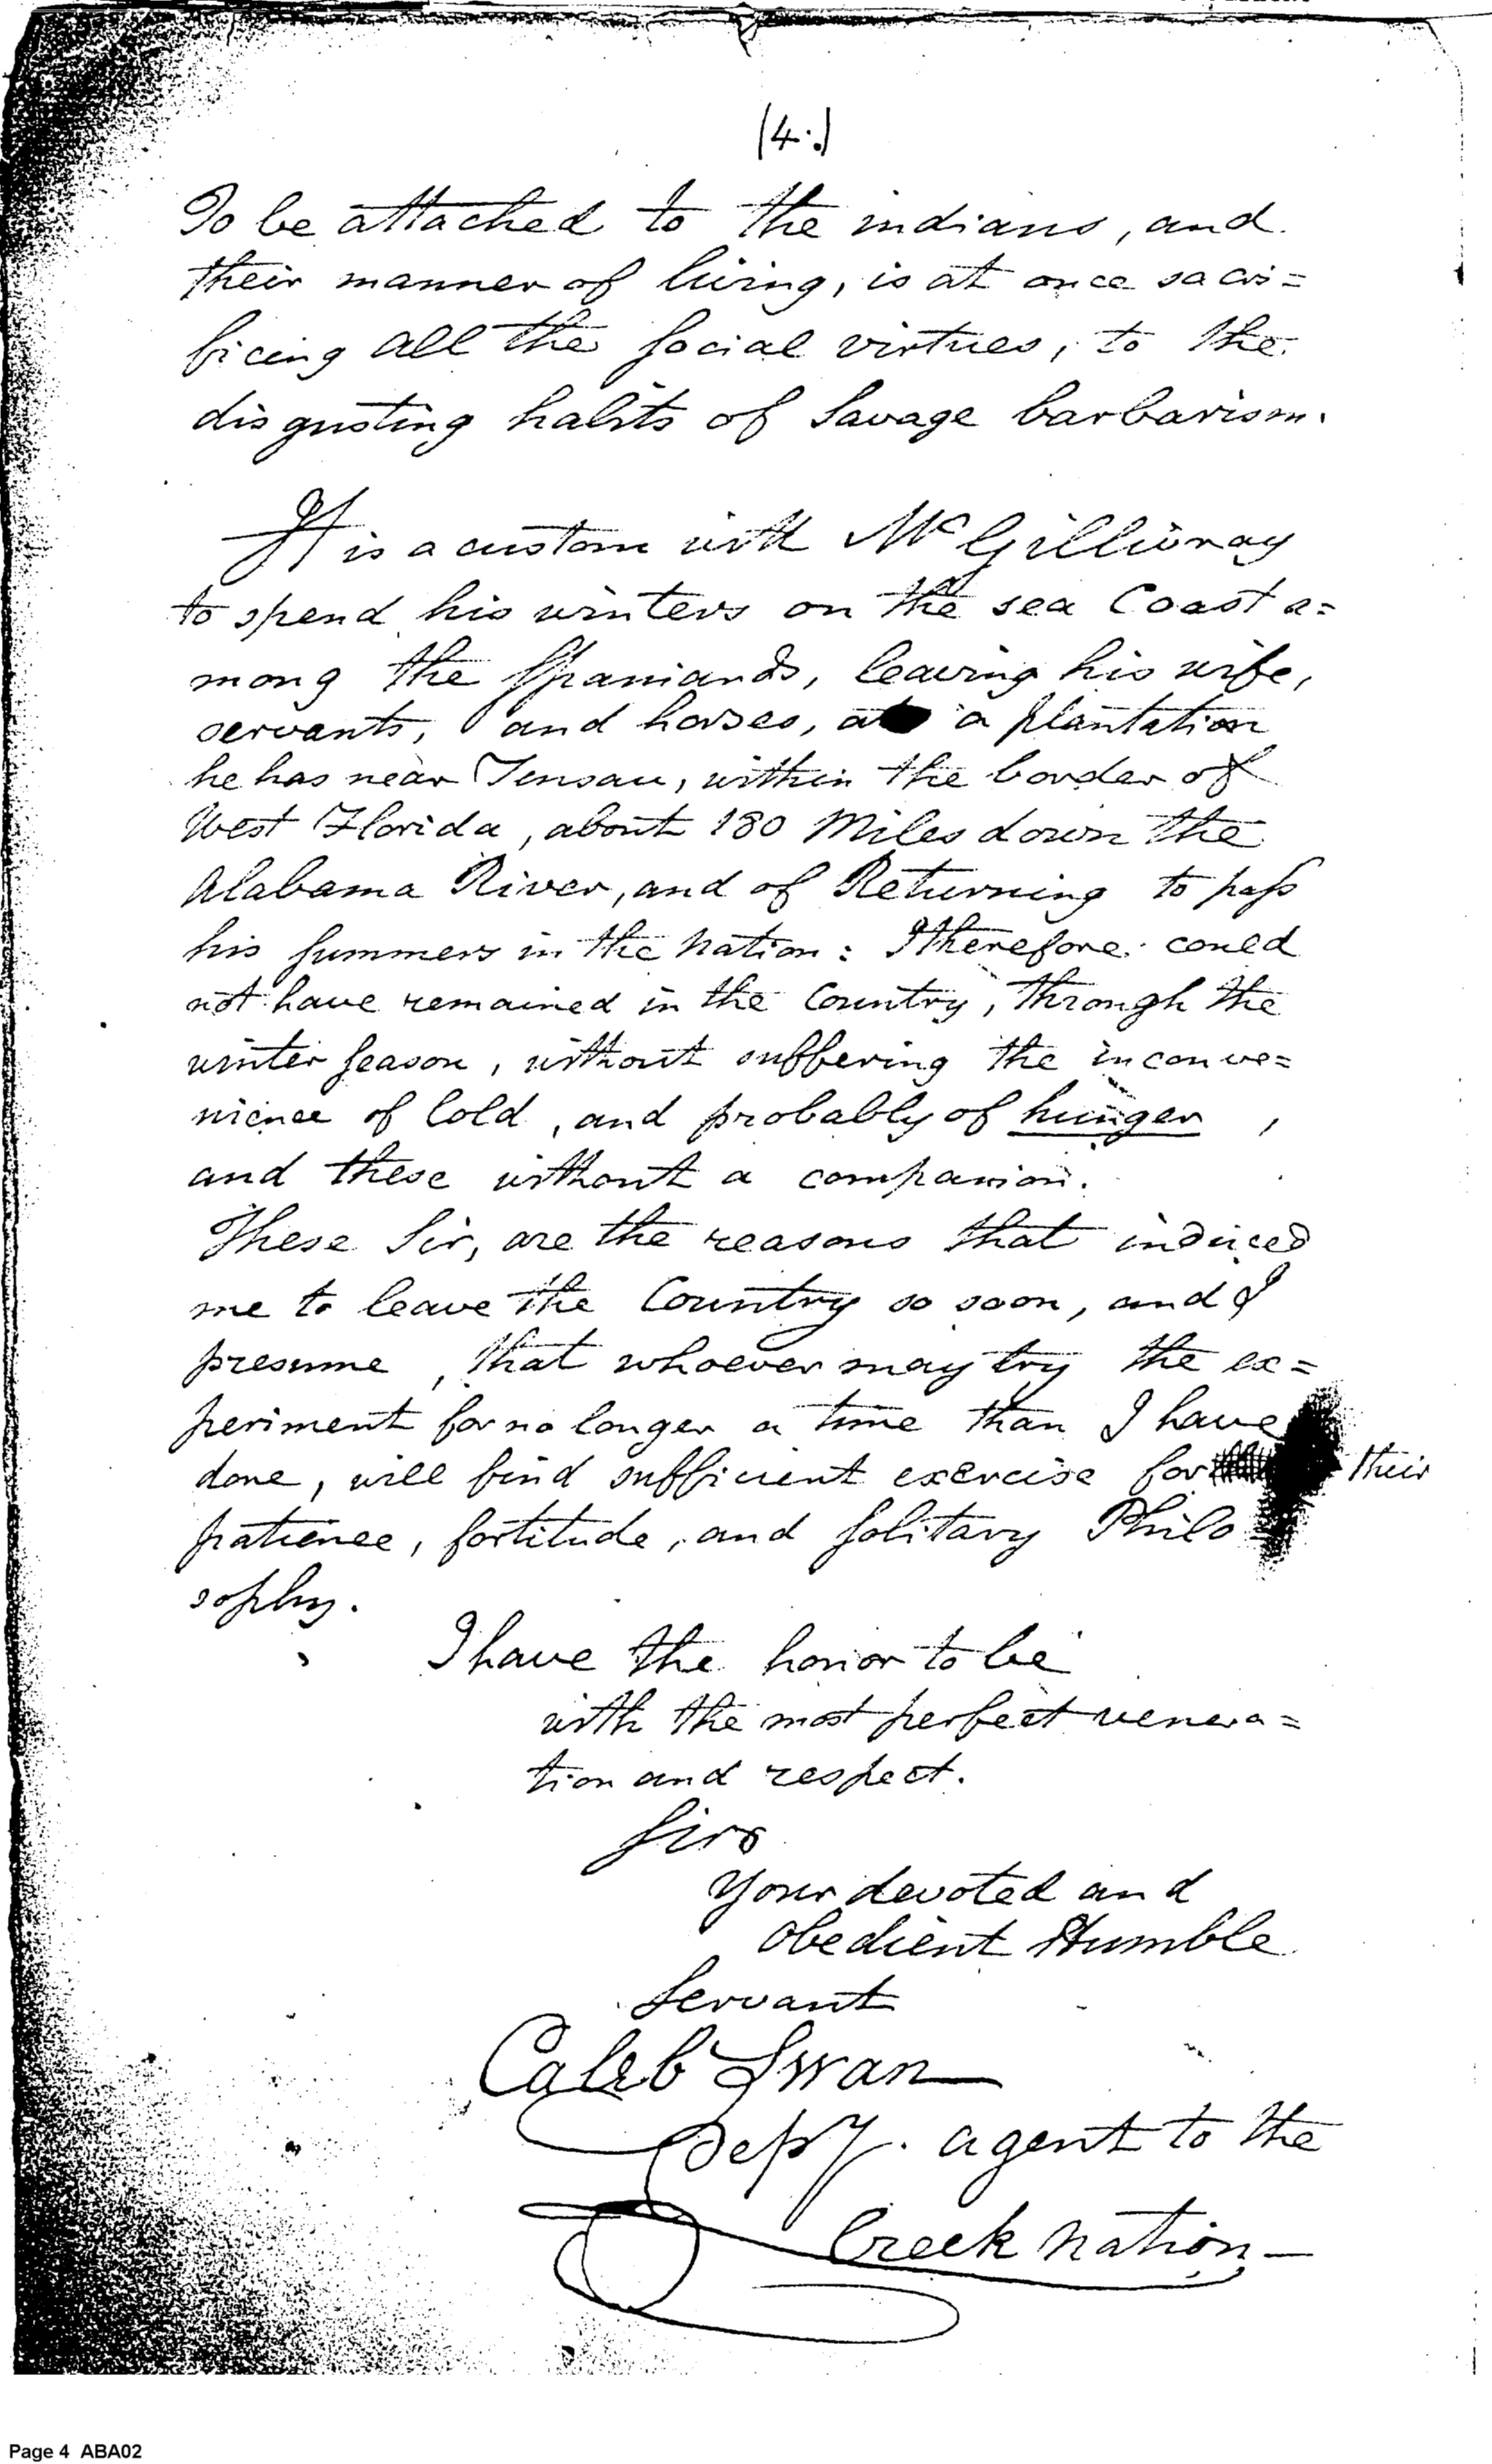 (4.)
To be attached to the indians, and
their manner of living, is at once sacri=
ficing all the social virtues, to the
disgusting habits of Savage barbarism.
It is a custom with McGillivray
to spend his winters on the sea Coast a=
mong the Spaniards, leaving his wife,
servants, and horses, at a plantation
he has near Tensau, within the border of
West Florida, about 180 Miles down the
Alabama River, and of Returning to pass
his summers in the Nation: I therefore could
not have remained in the Country, through the
winter season, without suffering the inconve=
nience of Cold, and probably of hunger,
and these without a companion.
These Sir, are the reasons that induced
me to leave the Country so soon, and I
presume, that whoever may try the ex=
periment for no longer a time than I have
done, will find sufficient exercise for their
patience, fortitude, and solitary Philo
sophy.
I have the honor to be
with the most perfect venera=
tion and respect.
Sir
Your devoted and
Obedient Humble
Servant
Caleb Swan
Depy. agent to the
Creek Nation—
Page 4 ABA02